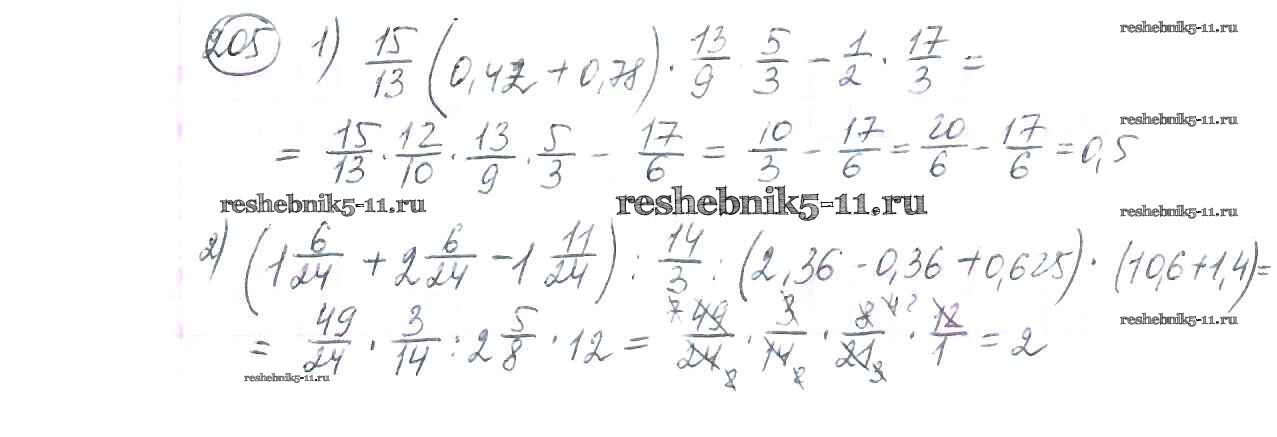 205 1) 15/13 (0,42 + 0,78) · 13/9 · 5/3 − 1/2 · 17/3 =
reshebnik5-11.ru
= 15/13 · 12/10 · 13/9 · 5/3 − 17/6 = 10/3 − 17/6 = 20/6 − 17/6 = 0,5
reshebnik5-11.ru
reshebnik5-11.ru
reshebnik5-11.ru
reshebnik5-11.ru
2) (1 6/24 + 2 6/24 − 1 11/24) : 14/3 : (2,36 − 0,36 + 0,625) · (10,6 + 1,4) =
= 49/24 · 3/14 : 2 5/8 · 12 = 49/24 · 3/14 · 8/21 · 12/1 = 2
reshebnik5-11.ru
reshebnik5-11.ru